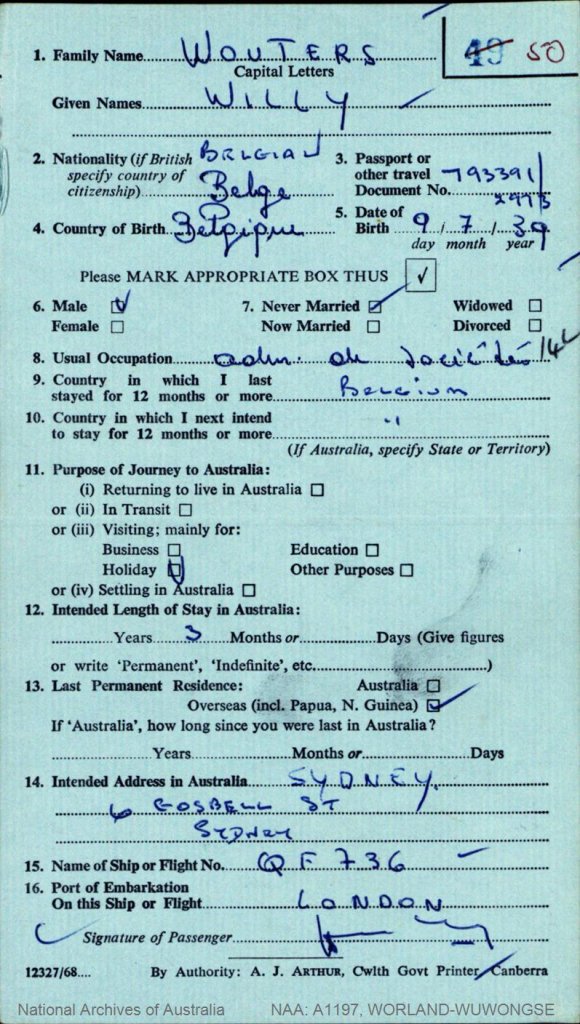 49 50
1. Family Name WOUTERS
Capital Letters
Given Names WILLY
2. Nationality (if British specify country of citizenship) BELGIAN Belge
3. Passport or other travel Document No. 793391 2973
4. Country of Birth Belgique
5. Date of Birth 9 / 7 / 39
day month year
Please MARK APPROPRIATE BOX THUS √
6. Male √ 7. Never Married √ Widowed
Female Now Married Divorced
8. Usual Occupation adm. de sociétés
9. Country in which I last stayed for 12 months or more Belgium
10. Country in which I next intend to stay for 12 months or more "
(If Australia, specify State or Territory)
11. Purpose of Journey to Australia:
(i) Returning to live in Australia
or (ii) In Transit
or (iii) Visiting; mainly for:
Business Education
Holiday √ Other Purposes
or (iv) Settling in Australia
12. Intended Length of Stay in Australia:
Years 3 Months or Days (Give figures
or write 'Permanent', 'Indefinite', etc. )
13. Last Permanent Residence: Australia
Overseas (incl. Papua, N. Guinea) √
If 'Australia', how long since you were last in Australia?
Years Months or Days
14. Intended Address in Australia SYDNEY.
6 GOSBELL ST
SYDNEY
15. Name of Ship or Flight No. QF 736
16. Port of Embarkation
On this Ship or Flight LONDON
Signature of Passenger
12327/68.... By Authority: A. J. ARTHUR, Cwlth Govt Printer, Canberra
National Archives of Australia NAA: A1197, WORLAND-WUWONGSE